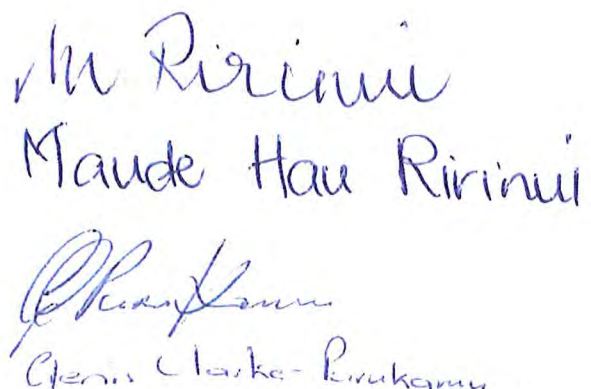 M Ririnui
Maude Hau Ririnui
Glenis Clarke-